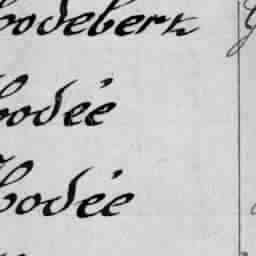 Hodebert
Hodée
Hodée